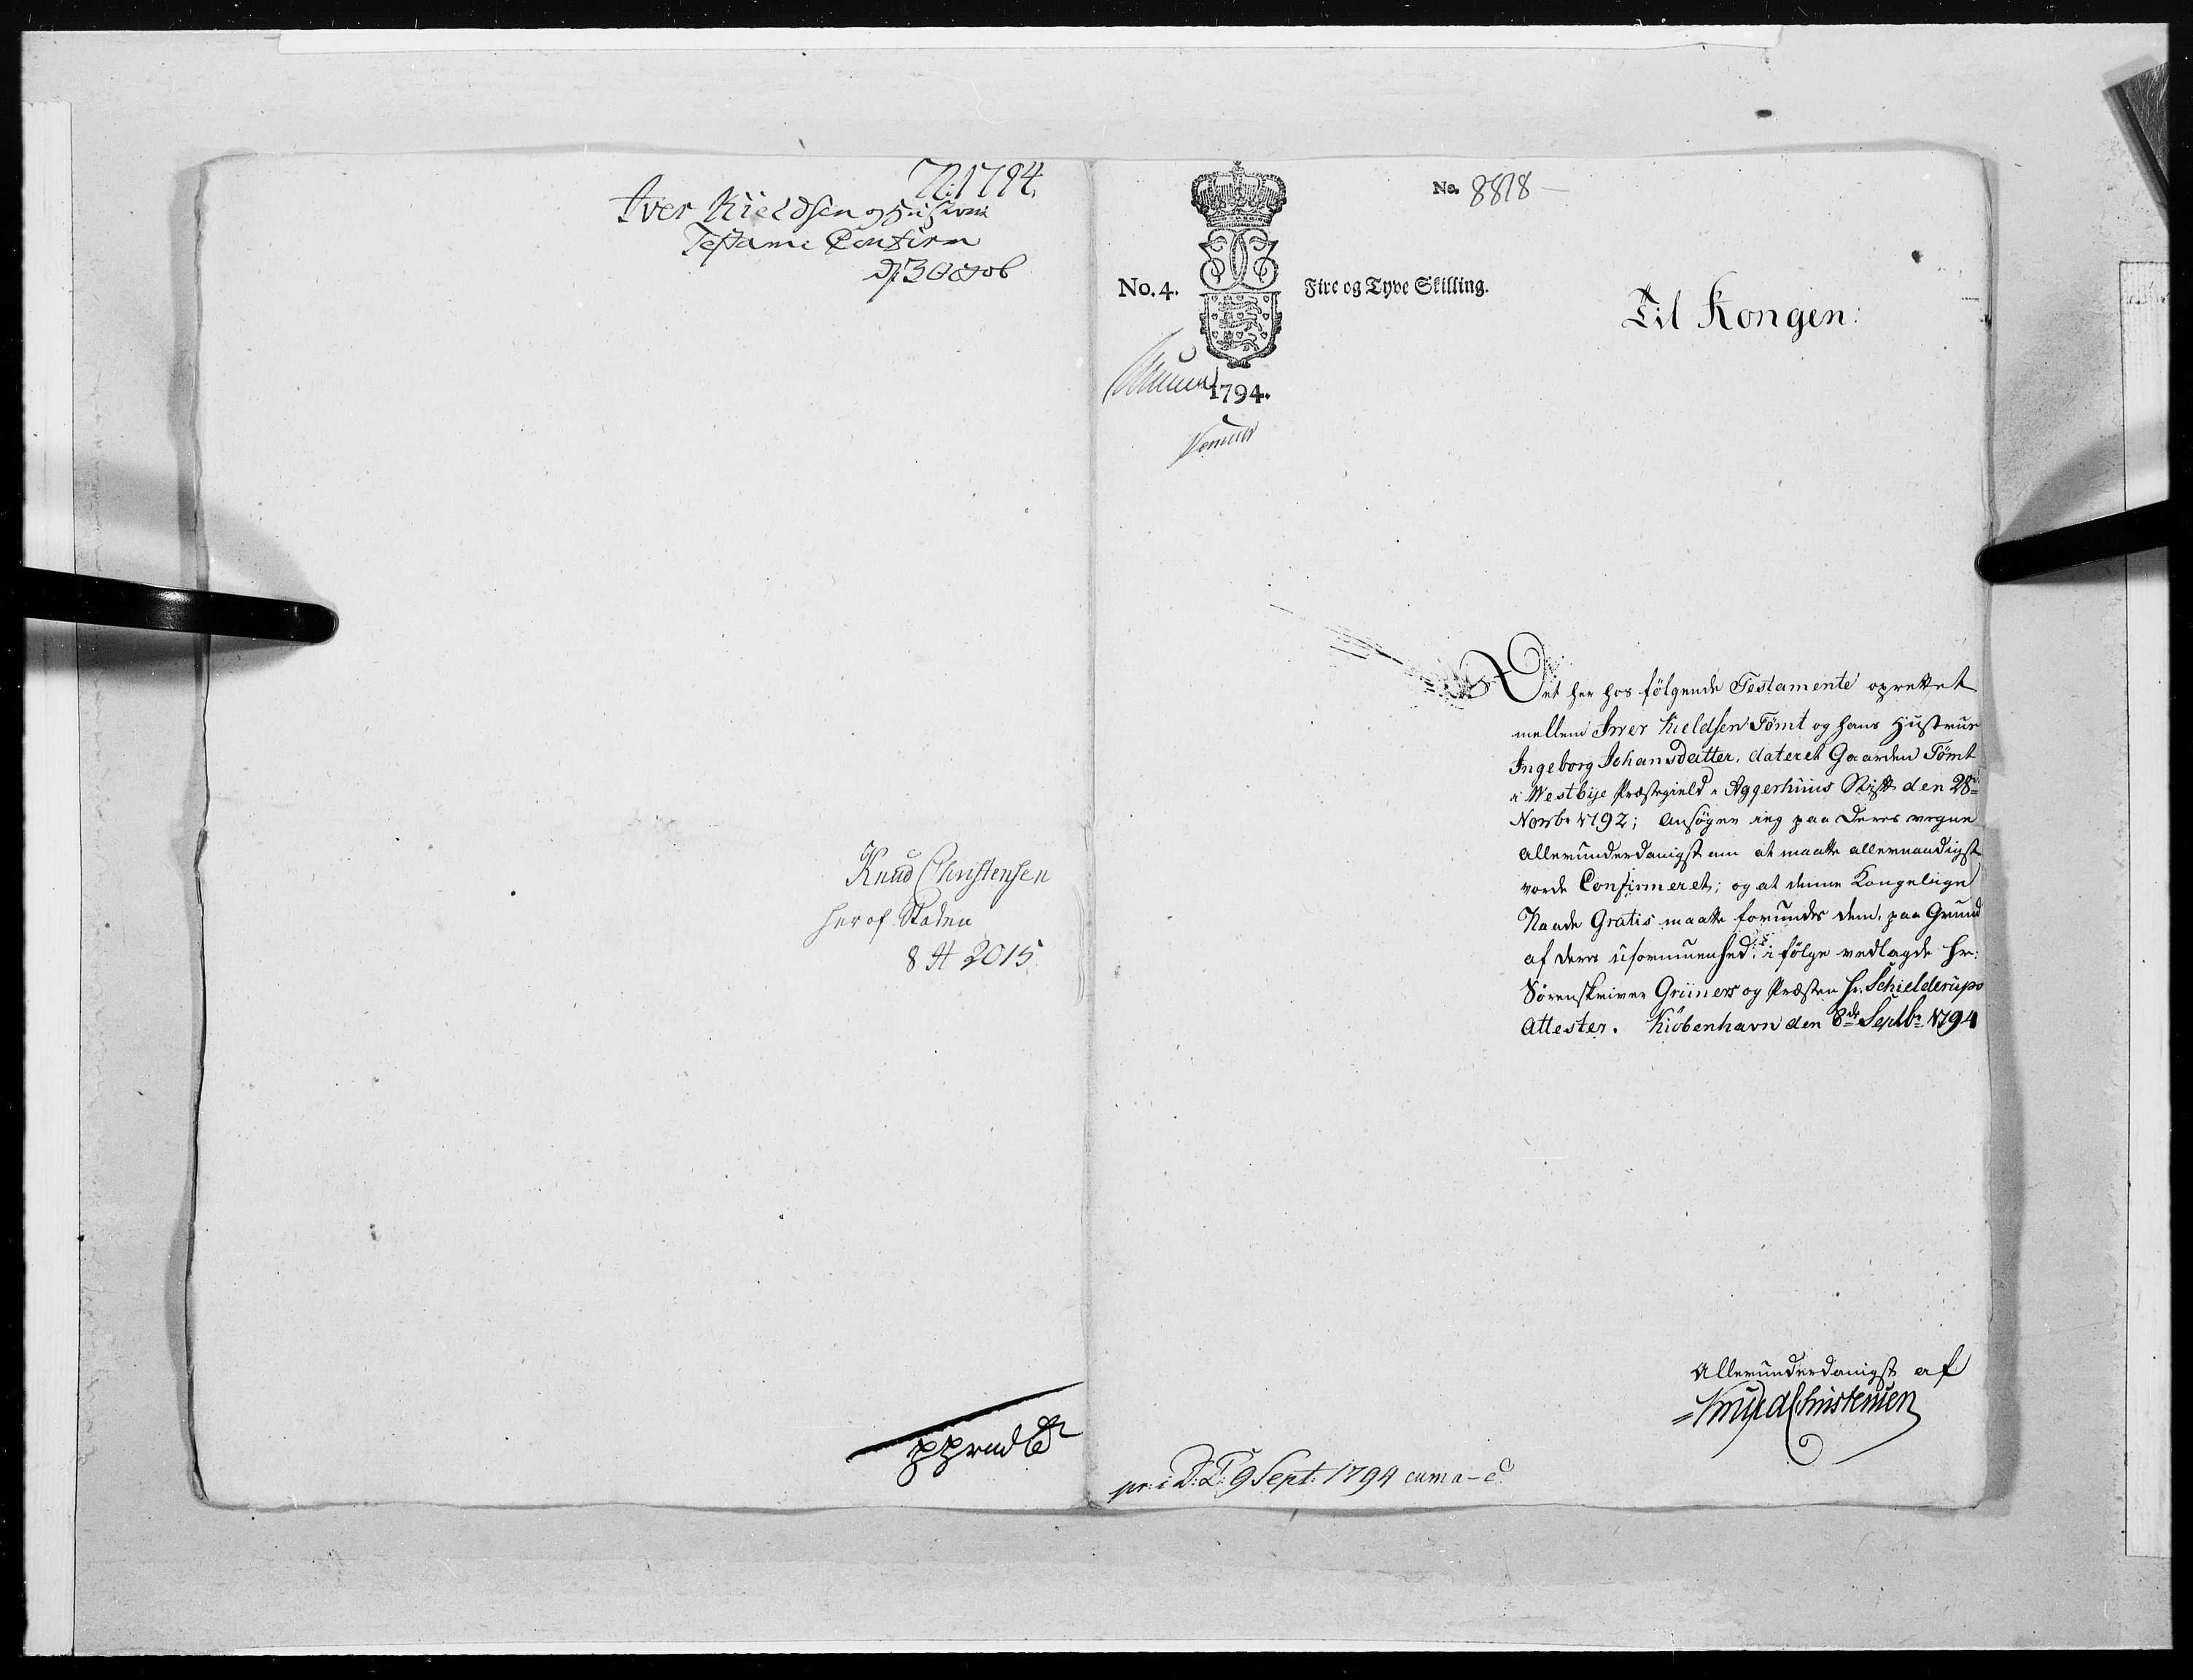 N: 1794.
Iver Kieldsen og Hustrues
Testame Confirm
D 3 Octob
Knud Christensen
her af Staden
8 A 2015
No. 8818
No. 4.
Fire og Tyve Skilling.
1794.
Til Kongen:
Det her hos följgende Testamente oprettet
mellem Iver Kieldsen Tömt og hans Hustrue
Ingeborg Johansdatter, dateret Gaarden Tömt
i Westbye Præstegield i Aggerhuus Stift den 28de
Novbr 1792; ansöger ieg paa Deres vegne
allerunderdanigst om at maatte allernaadigst
vorde Confirmeret; og at denne Kongelige
Naade Gratis maatte forundes dem, paa Grund
af deres uformuenhed, i fölge vedlagde Hr:
Sörenskriver Grüners og Præsten Hr: Schielderups
Attester. Kiöbenhavn den 8de Septbr 1794
Allerunderdanigst af
Knud Christensen
pr: i D: C: 9 Sept: 1794 cum a-c